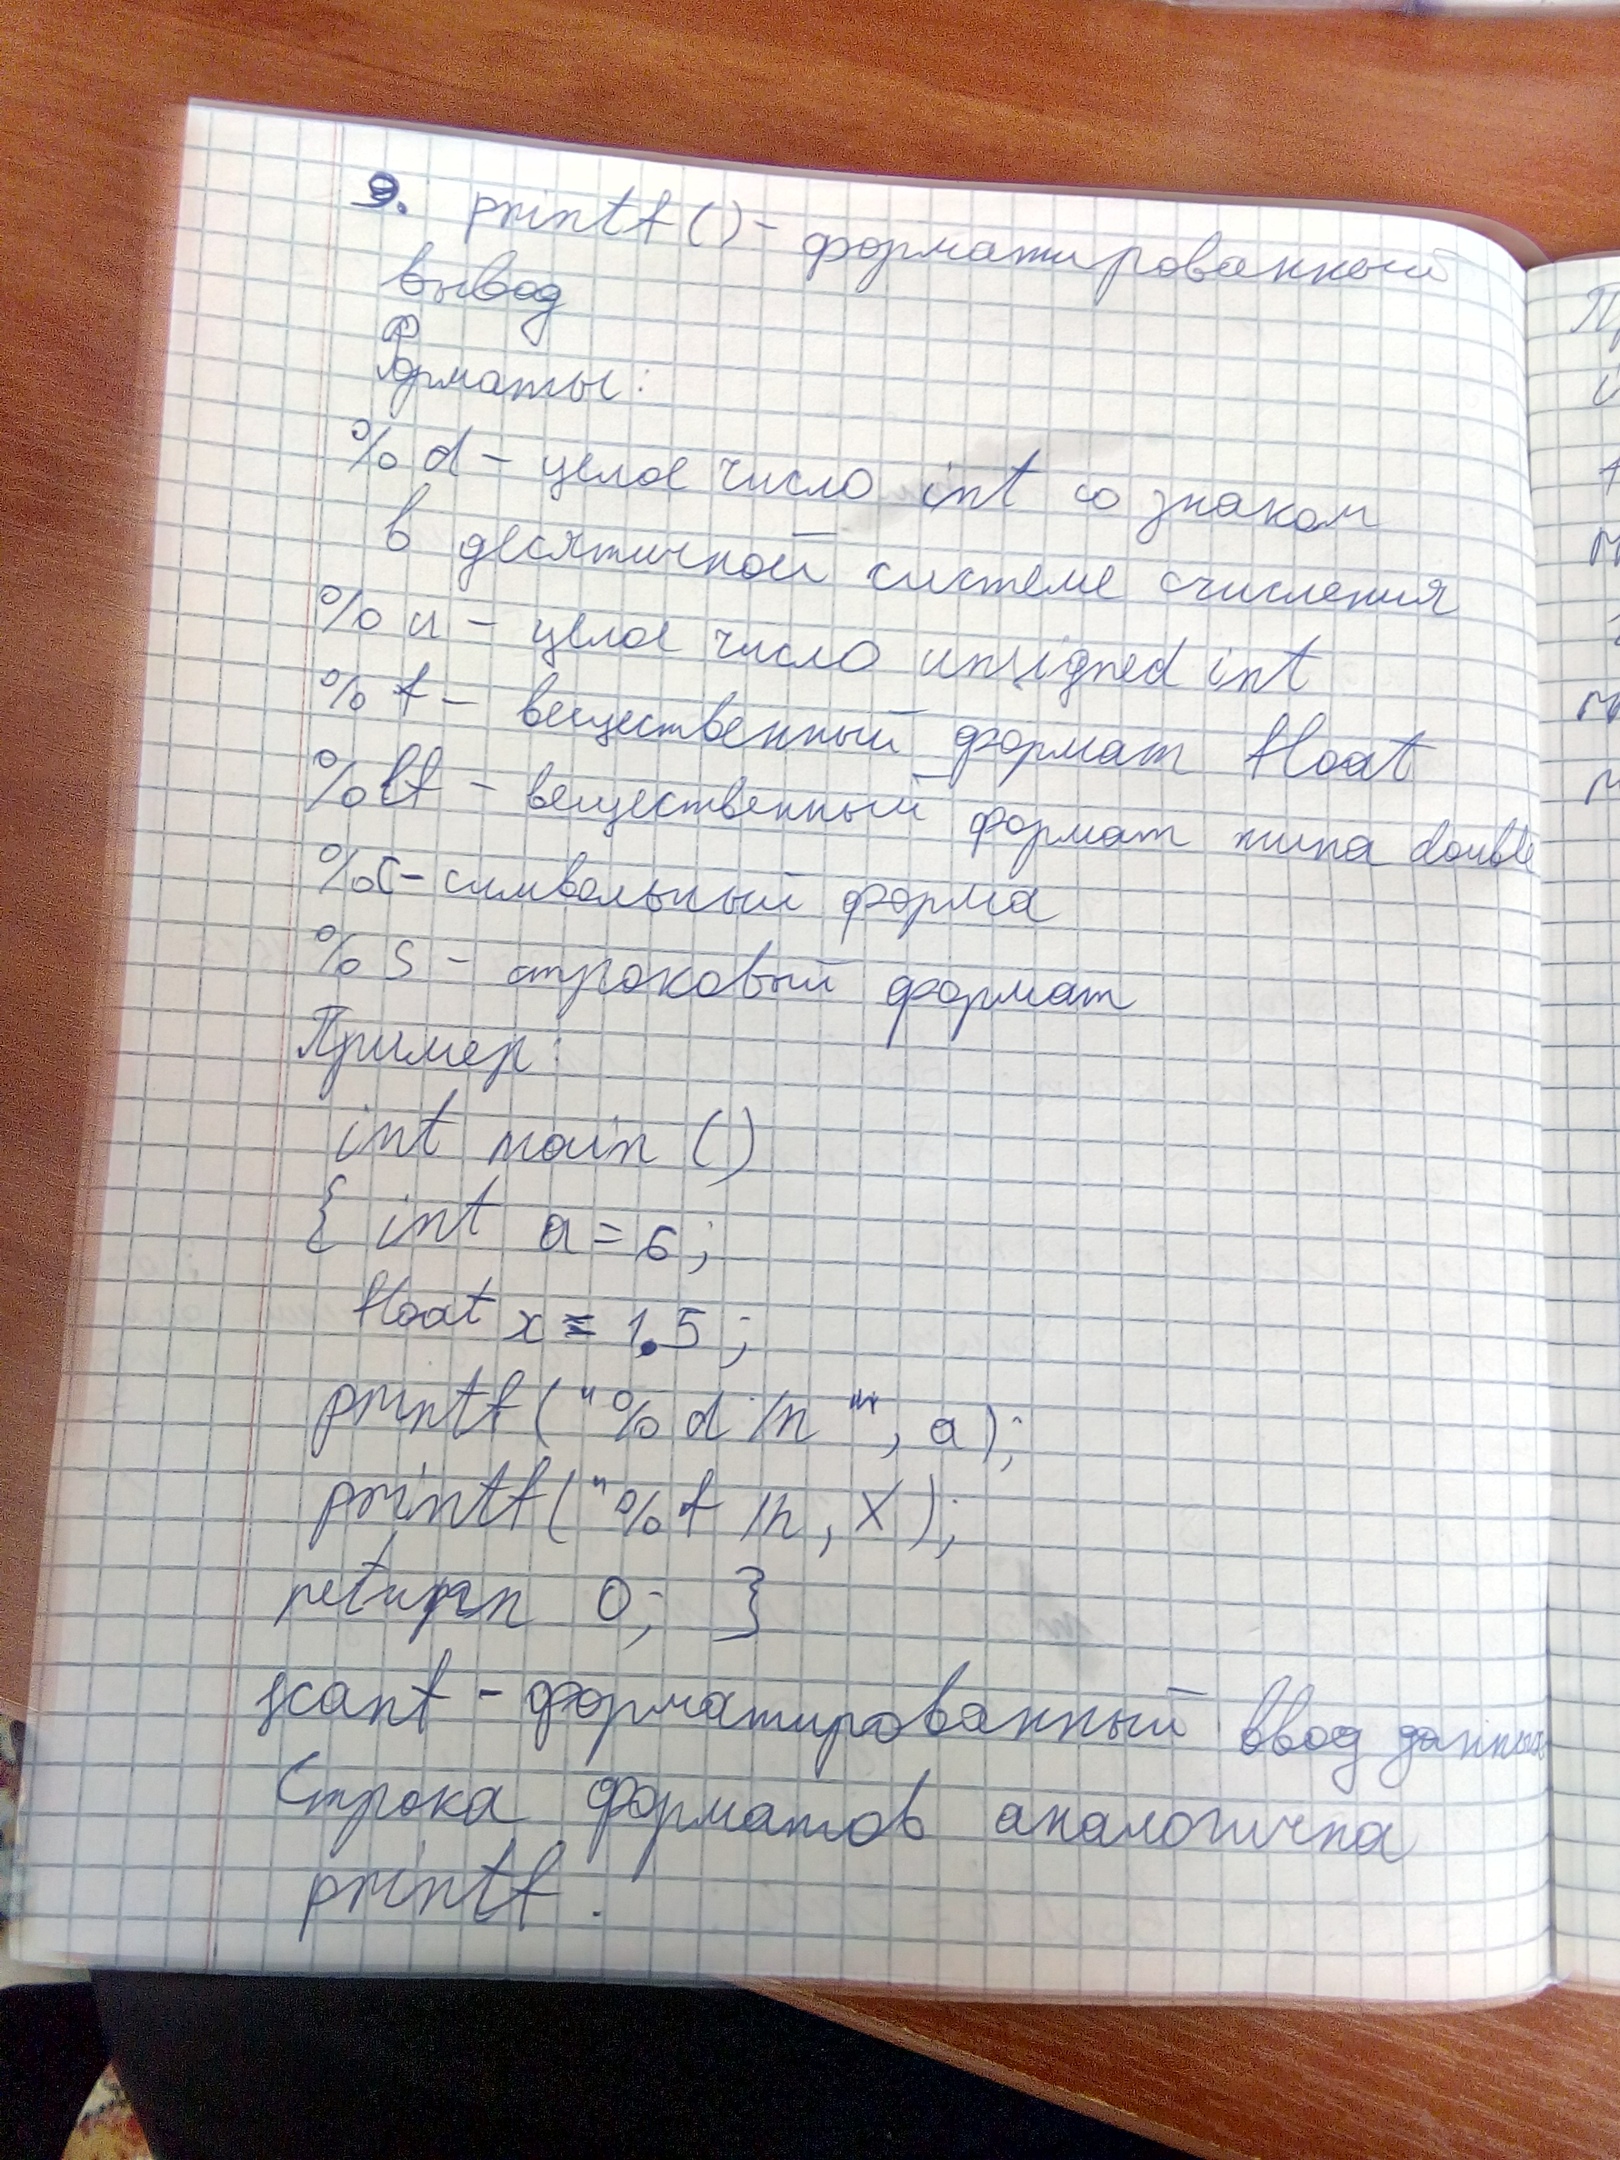 9. printf() - форматированный
вывод
Форматы:
% d - целое число int со знаком
в десятичной системе счисления
% u - целое число unsigned int
% f - вещественный формат float
% lf - вещественный формат типа double
%c - символьный форма
% s - строковый формат
Пример:
int main ()
{ int a = 6;
float x = 1.5;
printf ("% d /n", a);
printf ("% f /n, x);
return 0; }
scanf - форматированный ввод данных
Строка форматов аналогична
printf.